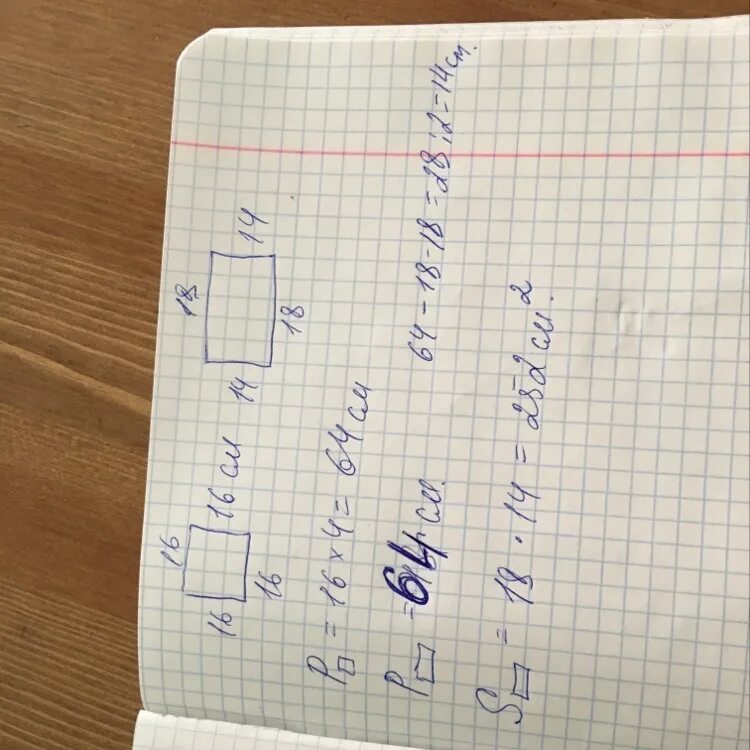 16
16 16 см
16
18
14 14
18
P□ = 16 × 4 = 64 см
P▭ = 64 см. 64 - 18 - 18 = 28 : 2 = 14 см.
S▭ = 18 · 14 = 252 см².